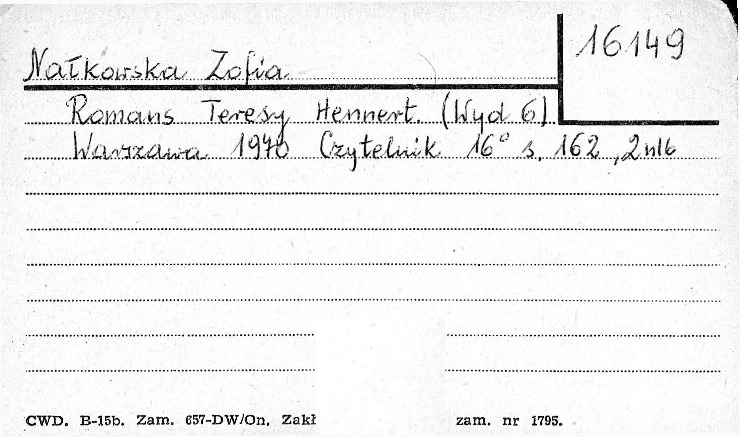 16149
Nałkowska Zofia
Romans Teresy Hennert. (Wyd 6)
Warszawa 1970 Czytelnik 16° s. 162, 2nlb
CWD. B-15b. Zam. 657-DW/On. Zakł zam. nr 1795.